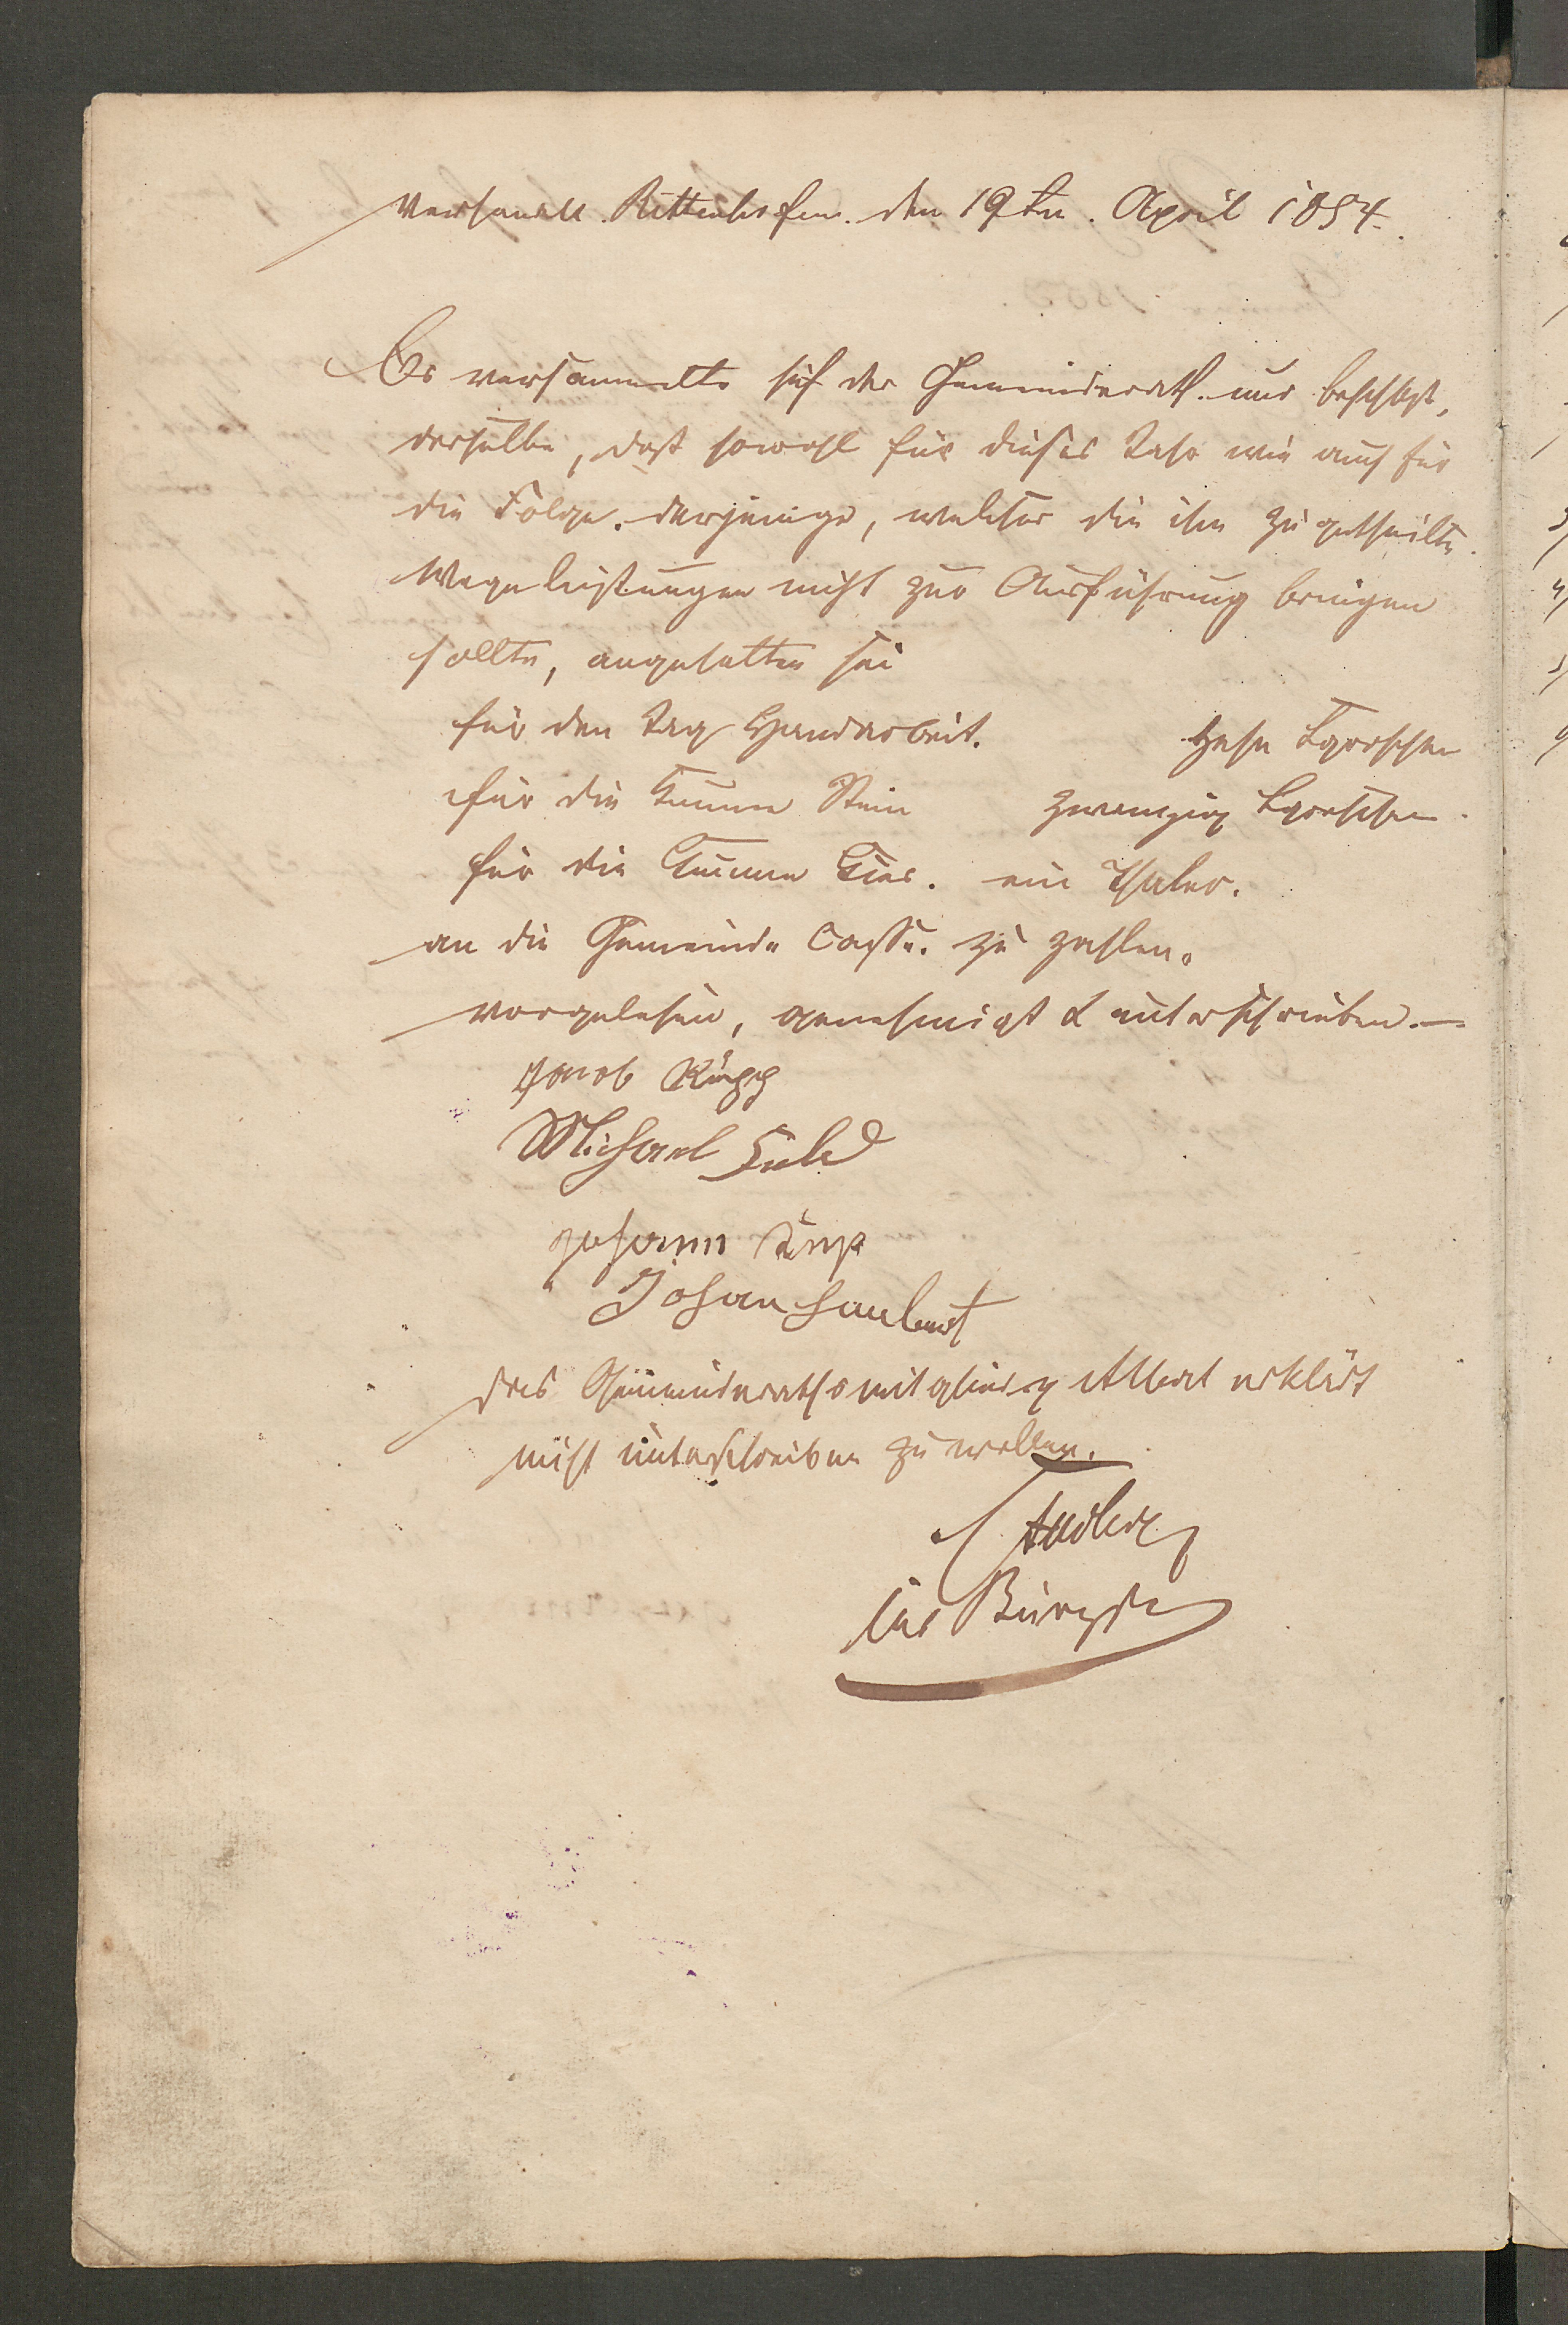 Verhandelt Rittenhofen. den 19ten. April 1854.
Es versammelte sich der Gemeinderath. und beschloß,
derselbe, daß sowohl für dieses Jahr wie auch für
die Folge. derjenige, welcher die ihm zugetheilte.
Wegeleistungen nicht zur Ausführung bringen
sollte, angehalten sei
für den Tag Handarbeit. Zehn Sgroschen
für die Summe Stein zwanzig Sgroschen.
für die Summe Kies. ein Thaler.
an die Gemeinde Casse. zu zahlen.
vorgelesen, genehmigt & unterschrieben.—
Jacob Rupp
Michael
Johann
Johan
Das Gemeinderathsmitglied Albert erklärt
nicht unterschreiben zu wollen.
Der Bürgstr